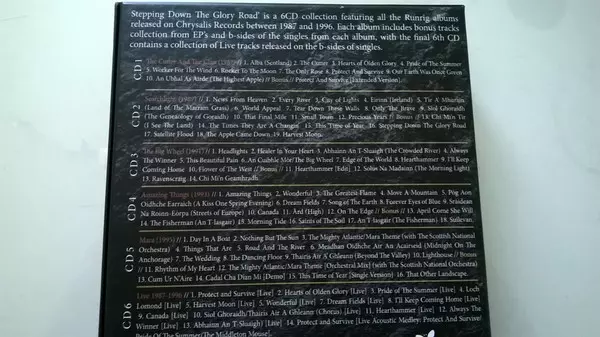 Stepping Down The Glory Road' is a 6CD collection featuring all the Runrig albums
released on Chrysalis Records between 1987 and 1996. Each album includes bonus tracks
collection from EP's and b-sides of the singles from each album, with the final 6th CD
contains a collection of Live tracks released on the b-sides of singles.
CD1
The Cutter And The Clan (1987) // 1. Alba (Scotland) 2. The Cutter 3. Hearts of Olden Glory 4. Pride of The Summer
5. Worker For The Wind 6. Rocket To The Moon 7. The Only Rose 8. Protect And Survive 9. Our Earth Was Once Green
10. An Ubhal As Airde (The Highest Apple) // Bonus // Protect And Survive [Extended Version]
CD2
Searchlight (1989) // 1. News From Heaven 2. Every River 3. City of Lights 4. Eirinn (Ireland) 5. Tir A Mhurain
(Land of The Marram Grass) 6. World Appeal 7. Tear Down These Walls 8. Only The Brave 9. Siol Ghoraidh
(The Genealogy of Goraidh) 10. That Final Mile 11. Small Town 12. Precious Years // Bonus // 13. Chi M'in Tir
(I See The Land) 14. The Times They Are A Changin' 15. This Time of Year 16. Stepping Down The Glory Road
17. Satellite Flood 18. The Apple Came Down 19. Harvest Moon
CD3
The Big Wheel (1991) // 1. Headlights 2. Healer In Your Heart 3. Abhainn An T-Sluaigh (The Crowded River) 4. Always
The Winner 5. This Beautiful Pain 6. An Cuibhle Mór/The Big Wheel 7. Edge of The World 8. Hearthammer 9. I'll Keep
Coming Home 10. Flower of The West // Bonus // 11. Hearthammer [Edit] 12. Solus Na Madainn (The Morning Light)
13. Ravenscraig 14. Chi M'in Geamhradh
CD4
Amazing Things (1993) // 1. Amazing Things 2. Wonderful 3. The Greatest Flame 4. Move A Mountain 5. Pòg Aon
Oidhche Earraich (A Kiss One Spring Evening) 6. Dream Fields 7. Song of The Earth 8. Forever Eyes of Blue 9. Sràidean
Na Roinn-Eòrpa (Streets of Europe) 10. Canada 11. Àrd (High) 12. On The Edge // Bonus // 13. April Come She Will
14. The Fisherman (An T-Iasgair) 18. Morning Tide 16. Saints of The Soil 17. An T-Iasgair (The Fisherman) 18. Suilevan
CD5
Mara (1995) // 1. Day In A Boat 2. Nothing But The Sun 3. The Mighty Atlantic/Mara Theme (with The Scottish National
Orchestra) 4. Things That Are 5. Road And The River 6. Meadhan Oidhche Air An Acairseid (Midnight On The
Anchorage) 7. The Wedding 8. The Dancing Floor 9. Thairis Air A Ghleann (Beyond The Valley) 10. Lighthouse // Bonus
// 11. Rhythm of My Heart 12. The Mighty Atlantic/Mara Theme [Orchestral Mix] (with The Scottish National Orchestra)
13. Cum Ur N'Aire 14. Cadal Chа Dian Mi [Demo] 15. This Time of Year [Single Version] 16. That Other Landscape.
CD6
Live 1987-1996 // 1. Protect and Survive [Live] 2. Hearts of Olden Glory [Live] 3. Pride of The Summer [Live] 4. Loch
Lomond [Live] 5. Harvest Moon [Live] 5. Wonderful [Live] 7. Dream Fields [Live] 8. I'll Keep Coming Home [Live]
9. Canada [Live] 10. Siol Ghoraidh/Thairis Air A Ghleann (Chorus) [Live] 11. Hearthammer [Live] 12. Always The
Winner [Live] 13. Abhainn An T-Sluaigh) [Live] 14. Protect and Survive [Live Acoustic Medley: Protect And Survive/
Pride Of The Summer/The Middleton Mouse]